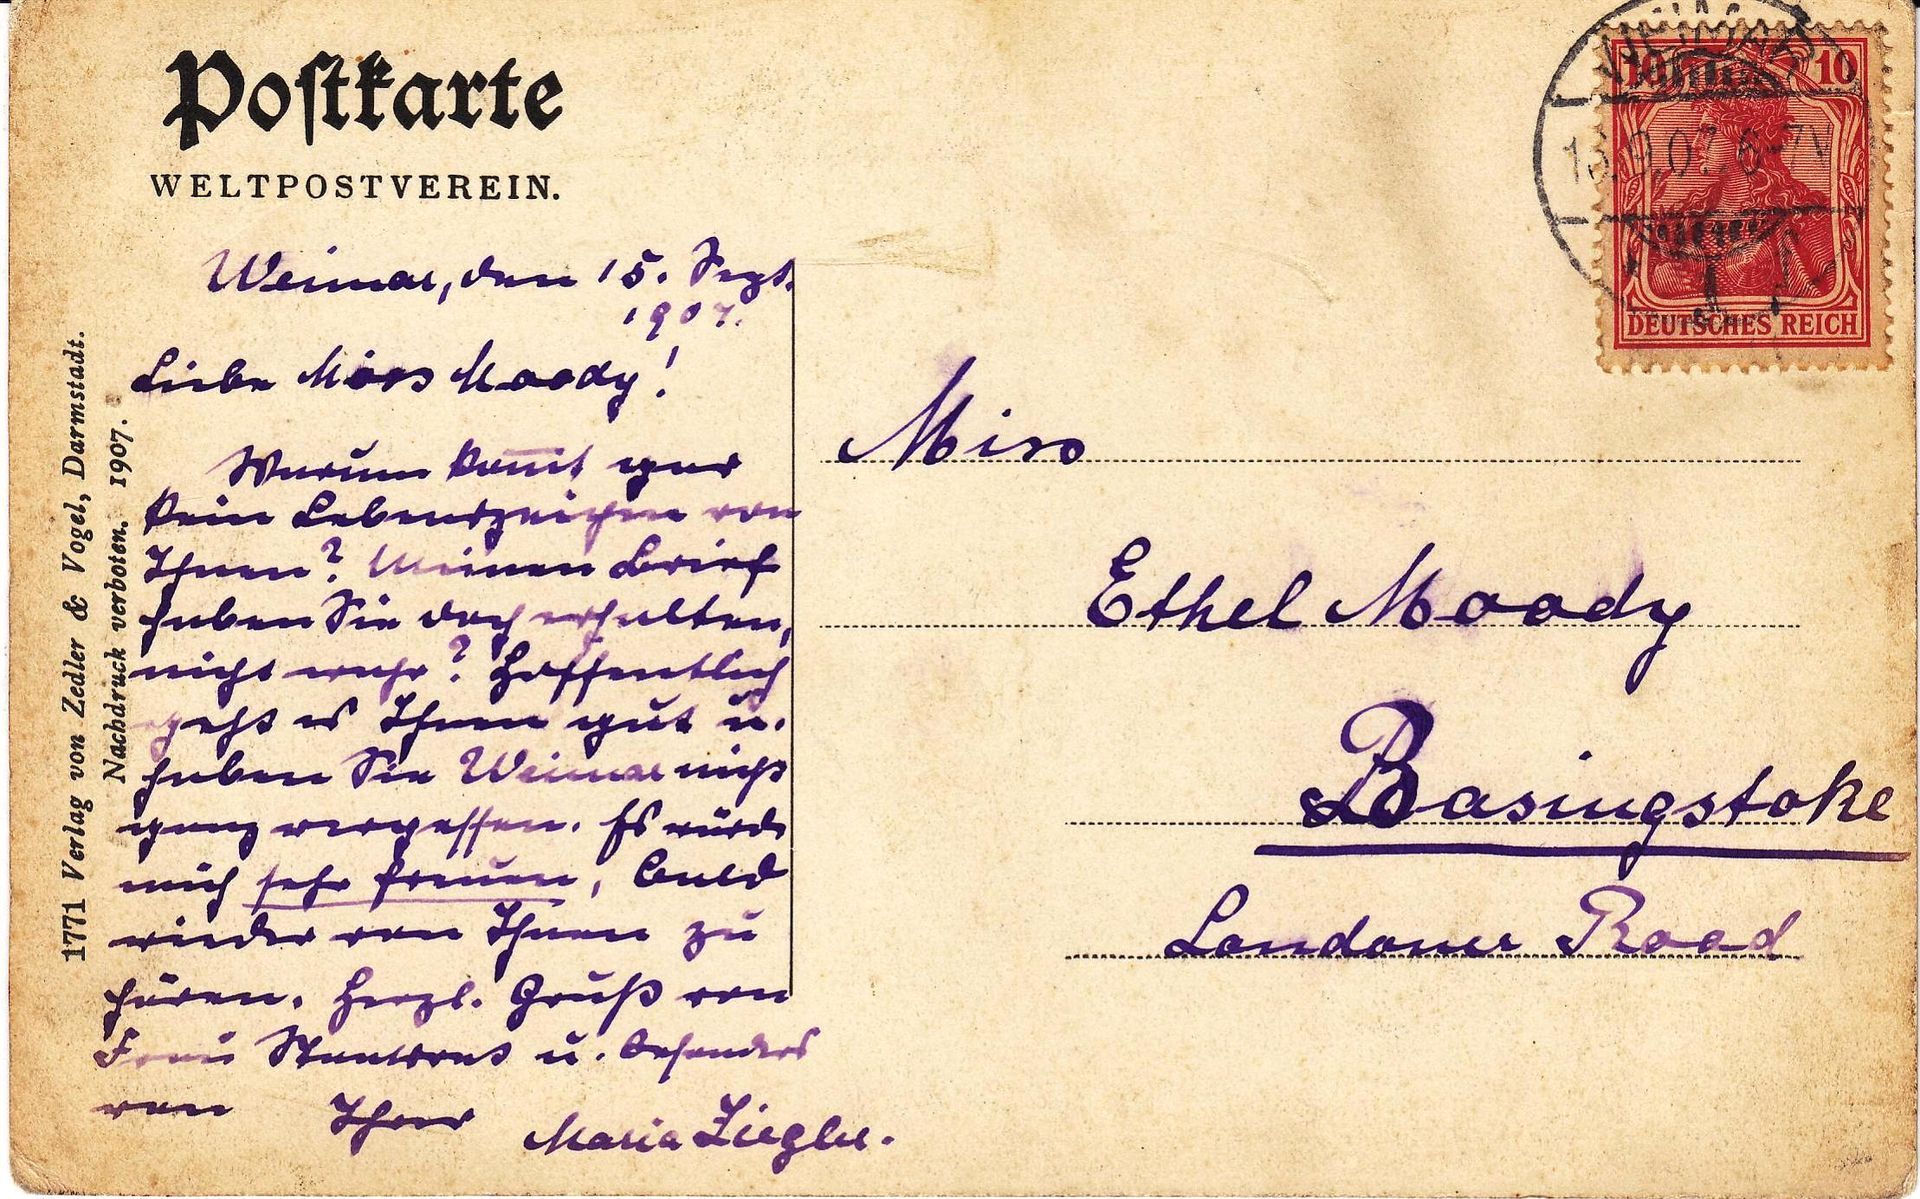 Postkarte
WELTPOSTVEREIN.
Weimar, den 15. Sept.
1907.
Liebe Miss Moody!
Warum kom̄t gar
kein Lebenszeichen von
Ihnen? Meinen Brief
haben Sie doch erhalten,
nicht wahr? Hoffentlich
geht es Ihnen gut u.
haben Sie Weimar nicht
ganz vergessen. Es würde
mich sehr freuen, bald
wieder von Ihnen zu
hören. Herzl. Gruß von
Frau Staatsrat u. besonders
von Ihrer Maria Ziegler.
1771 Verlag von Zedler & Vogel, Darmstadt.
Nachdruck verboten. 1907.
10 10
DEUTSCHES REICH
WEIMAR
.9.07. 6-7N
1
Miss
Ethel Moody
Basingstoke
Londoner Road